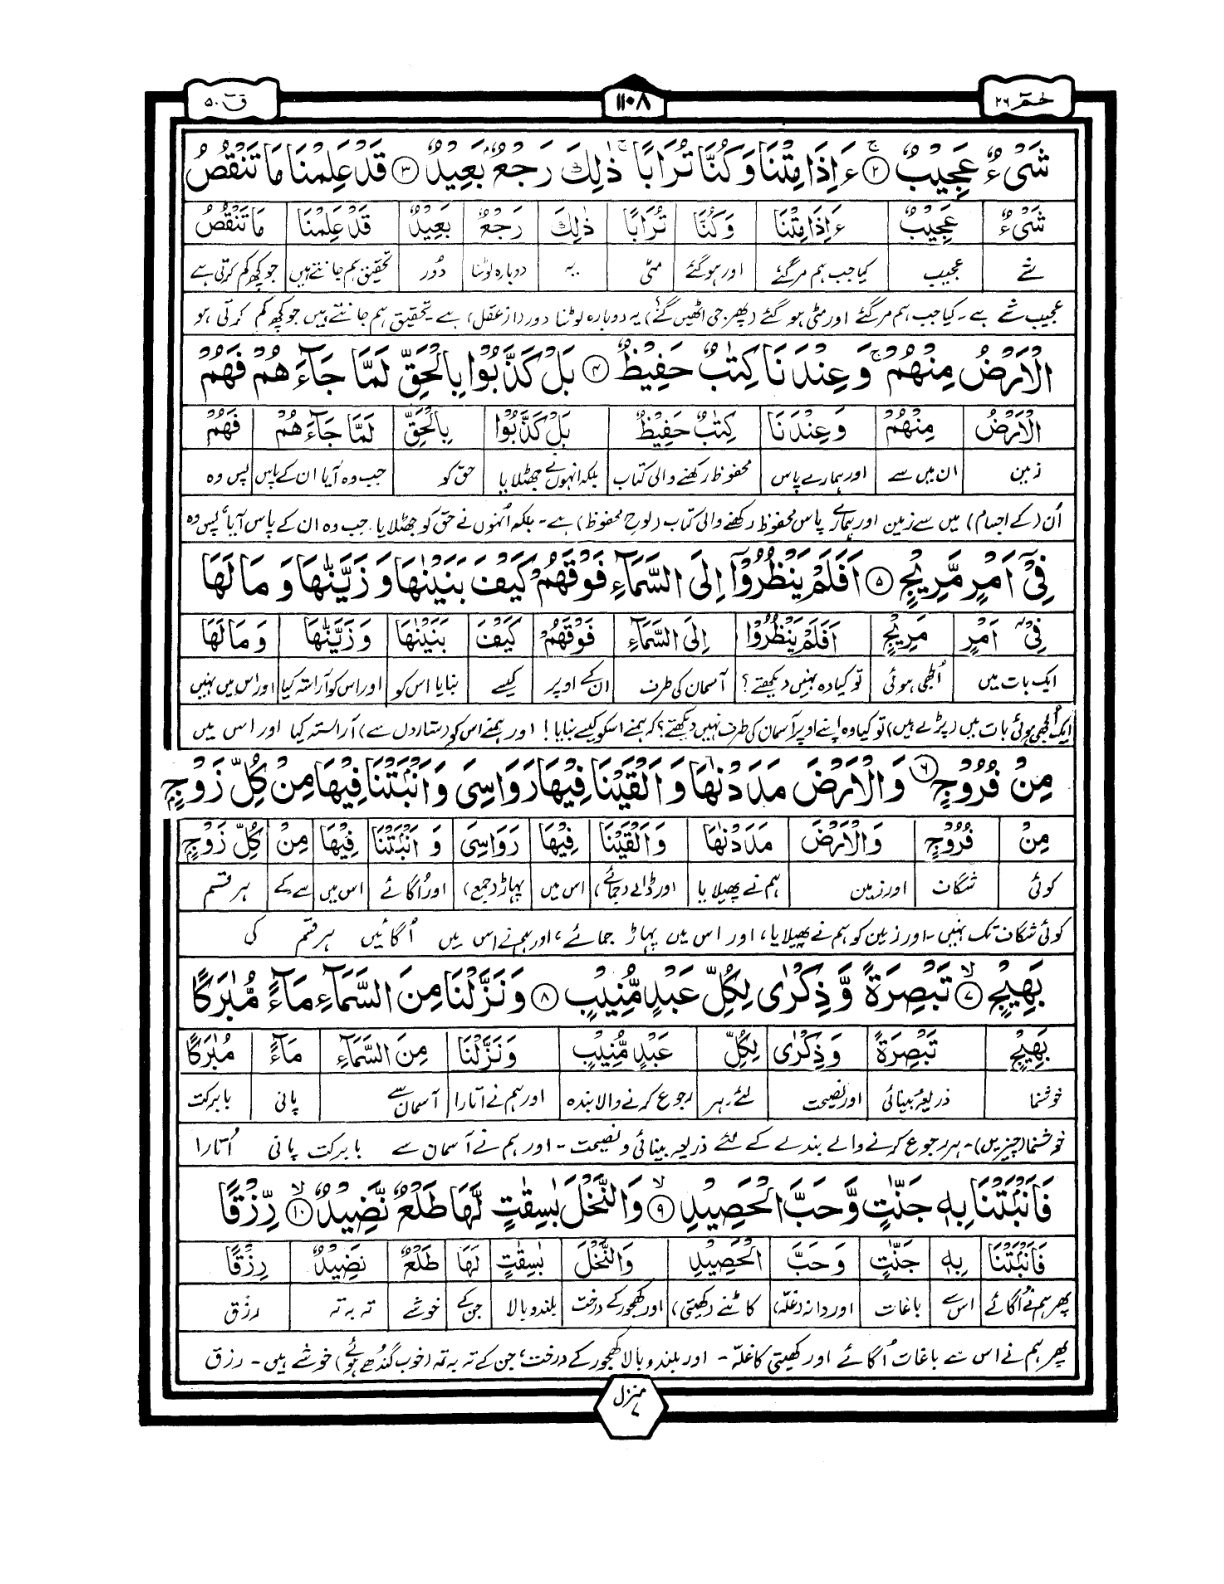 حٰمٓ ٢٦
١١٠٨
قٓ ٥٠
شَیْءٌ عَجِیْبٌ ۚ ٢ ءَاِذَا مِتْنَا وَكُنَّا تُرَابًا ۚ ذٰلِكَ رَجْعٌۢ بَعِیْدٌ ٣ قَدْ عَلِمْنَا مَا تَنْقُصُ
شَیْءٌ عَجِیْبٌ ءَاِذَا مِتْنَا وَكُنَّا تُرَابًا ذٰلِكَ رَجْعٌۢ بَعِیْدٌ قَدْ عَلِمْنَا مَا تَنْقُصُ
شے عجیب کیا جب ہم مر گئے اور ہو گئے مٹی یہ دوبارہ لوٹنا دُور تحقیق ہم جانتے ہیں جو کچھ کم کرتی ہے
عجیب شے ہے۔ کیا جب ہم مر گئے اور مٹی ہو گئے (پھر جی اٹھیں گے) یہ دوبارہ لوٹنا دور (از عقل) ہے تحقیق ہم جانتے ہیں جو کچھ کم کرتی ہو
الْاَرْضُ مِنْهُمْ ۚ وَعِنْدَنَا كِتٰبٌ حَفِیْظٌ ٤ بَلْ كَذَّبُوْا بِالْحَقِّ لَمَّا جَآءَهُمْ فَهُمْ
الْاَرْضُ مِنْهُمْ وَعِنْدَنَا كِتٰبٌ حَفِیْظٌ بَلْ كَذَّبُوْا بِالْحَقِّ لَمَّا جَآءَهُمْ فَهُمْ
زمین ان میں سے اور ہمارے پاس محفوظ رکھنے والی کتاب بلکہ انہوں نے جھٹلایا حق کو جب وہ آیا ان کے پاس پس وہ
اُن (کے اجسام) میں سے زمین اور ہمارے پاس محفوظ رکھنے والی کتاب (لوح محفوظ) ہے۔ بلکہ اُنہوں نے حق کو جھٹلایا جب وہ ان کے پاس آیا، پس وہ
فِیْۤ اَمْرٍ مَّرِیْجٍ ٥ اَفَلَمْ یَنْظُرُوْۤا اِلَی السَّمَآءِ فَوْقَهُمْ كَیْفَ بَنَیْنٰهَا وَ زَیَّنّٰهَا وَ مَا لَهَا
فِیْۤ اَمْرٍ مَرِیْجٍ اَفَلَمْ یَنْظُرُوْۤا اِلَی السَّمَآءِ فَوْقَهُمْ كَیْفَ بَنَیْنٰهَا وَ زَیَّنّٰهَا وَ مَا لَهَا
ایک بات میں اُلجھی ہوئی تو کیا وہ نہیں دیکھتے؟ آسمان کی طرف ان کے اوپر کیسے بنایا اس کو اور اس کو آراستہ کیا اور اس میں نہیں
ایک اُلجھی ہوئی بات میں (پڑے ہیں) تو کیا وہ اپنے اوپر آسمان کی طرف نہیں دیکھتے؟ کہ ہمنے اسکو کیسے بنایا! اور ہمنے اس کو (ستاروں سے) آراستہ کیا اور اس میں
مِنْ فُرُوْجٍ ٦ وَ الْاَرْضَ مَدَدْنٰهَا وَ اَلْقَیْنَا فِیْهَا رَوَاسِیَ وَ اَنْۢبَتْنَا فِیْهَا مِنْ كُلِّ زَوْجٍۭ
مِنْ فُرُوْجٍ وَ الْاَرْضَ مَدَدْنٰهَا وَ اَلْقَیْنَا فِیْهَا رَوَاسِیَ وَ اَنْۢبَتْنَا فِیْهَا مِنْ كُلِّ زَوْجٍ
کوئی شگاف اور زمین ہم نے پھیلایا اور ڈالے (جمائے) اس میں پہاڑ (جمع) اور اُگائے اس میں سے کے ہر قسم
کوئی شگاف تک نہیں۔ اور زمین کو ہم نے پھیلایا، اور اس میں پہاڑ جمائے، اور ہم نے اس میں اُگائیں ہر قسم کی
بَهِیْجٍ ۙ ٧ تَبْصِرَةً وَّ ذِكْرٰی لِكُلِّ عَبْدٍ مُّنِیْبٍ ٨ وَ نَزَّلْنَا مِنَ السَّمَآءِ مَآءً مُّبٰرَكًا
بَهِیْجٍ تَبْصِرَةً وَ ذِكْرٰی لِكُلِّ عَبْدٍ مُّنِیْبٍ وَ نَزَّلْنَا مِنَ السَّمَآءِ مَآءً مُبٰرَكًا
خوشنما ذریعۂ بینائی اور نصیحت لئے ہر رجوع کرنے والا بندہ اور ہم نے اتارا آسمان سے پانی بابرکت
خوشنما (چیزیں)۔ ہر رجوع کرنے والے بندے کے لئے ذریعہ بینائی و نصیحت۔ اور ہم نے آسمان سے بابرکت پانی اُتارا
فَاَنْۢبَتْنَا بِهٖ جَنّٰتٍ وَّ حَبَّ الْحَصِیْدِ ۙ ٩ وَ النَّخْلَ بٰسِقٰتٍ لَّهَا طَلْعٌ نَّضِیْدٌ ۙ ١٠ رِّزْقًا
فَاَنْۢبَتْنَا بِهٖ جَنّٰتٍ وَ حَبَّ الْحَصِیْدِ وَ النَّخْلَ بٰسِقٰتٍ لَهَا طَلْعٌ نَضِیْدٌ رِزْقًا
پھر ہم نے اُگائے اس سے باغات اور دانہ (غلّہ) کاٹنے (کھیتی) اور کھجور کے درخت بلند و بالا جن کے خوشے تہ بہ تہ رزق
پھر ہم نے اس سے باغات اُگائے اور کھیتی کا غلّہ۔ اور بلند و بالا کھجور کے درخت، جن کے تہ بہ تہ (خوب گندھے ہوئے) خوشے ہیں۔ رزق
منزل ٧